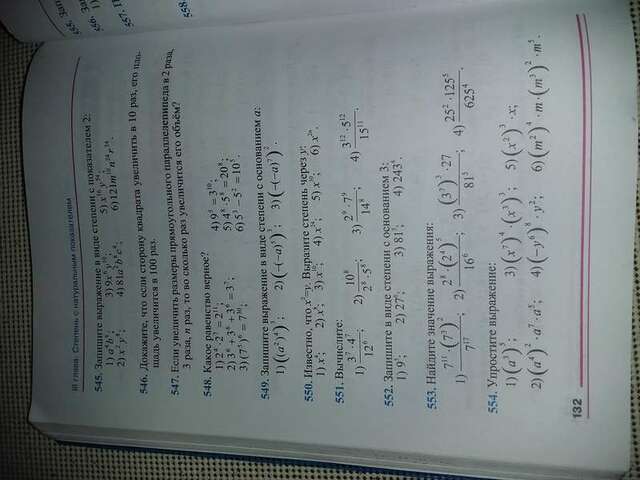 III глава. Степень с натуральным показателем
545. Запишите выражение в виде степени с показателем 2:
1) a⁴b⁶; 3) 9x⁶y¹⁰; 5) x¹⁶y⁵⁴;
2) x²y⁸; 4) 81a²b⁶c⁴; 6) 121m¹⁰n²⁴r³⁴.
546. Докажите, что если сторону квадрата увеличить в 10 раз, его пло-
щадь увеличится в 100 раз.
547. Если увеличить размеры прямоугольного параллелепипеда в 2 раза,
3 раза, n раз, то во сколько раз увеличится его объём?
548. Какое равенство верное?
1) 2⁴ · 2⁷ = 2¹¹; 4) 9⁵ = 3¹⁰;
2) 3⁶ + 3⁶ + 3⁶ = 3⁷; 5) 4⁸ · 5⁸ = 20⁸;
3) (7⁵)⁶ = 7³⁰; 6) 5³ – 5² = 10⁵.
549. Запишите выражение в виде степени с основанием a:
1) ((a²)⁴)³; 2) (–(–a)⁵)³; 3) (–(–a)⁷)².
550. Известно, что x²=y. Выразите степень через y:
1) x⁴; 2) x⁸; 3) x¹⁰; 4) x²⁴; 5) x³⁰; 6) x²ⁿ.
551. Вычислите:
1) 3⁷ · 4⁷ / 12⁶; 2) 10⁸ / 2⁸ · 5⁸; 3) 2⁹ · 7⁹ / 14⁸; 4) 3¹² · 5¹² / 15¹¹.
552. Запишите в виде степени с основанием 3:
1) 9⁵; 2) 27⁶; 3) 81⁵; 4) 243⁴.
553. Найдите значение выражения:
1) 7¹¹ · (7³)² / 7¹⁷; 2) 2⁸ · (2⁴)⁵ / 16⁶; 3) (3⁷)³ · 27 / 81⁵; 4) 25² · 125⁵ / 625⁴.
554. Упростите выражение:
1) (a³)⁵; 3) (x⁷)⁴ · (x³)³; 5) (x²)³ · x;
2) (a⁴)² · a⁷ · a⁵; 4) (–y⁶)⁸ · y²; 6) (m²)⁴ · m · (m³)² · m⁵.
132
555. Зап
556. Зап
1)
557. П
558.